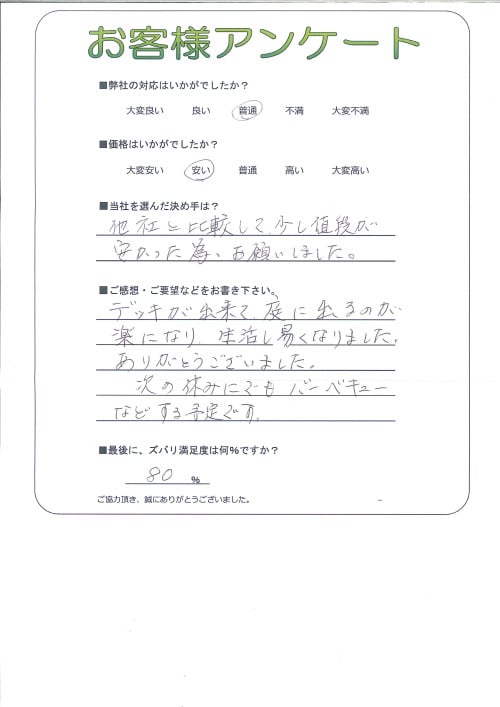 お客様アンケート
■弊社の対応はいかがでしたか？
大変良い 良い 普通 不満 大変不満
■価格はいかがでしたか？
大変安い 安い 普通 高い 大変高い
■当社を選んだ決め手は？
他社と比較して、少し値段が
安かった為、お願いしました。
■ご感想・ご要望などをお書き下さい。
デッキが出来て、庭に出るのが
楽になり、生活し易くなりました。
ありがとうございました。
次の休みにでもバーベキュー
などする予定です。
■最後に、ズバリ満足度は何％ですか？
80 ％
ご協力頂き、誠にありがとうございました。